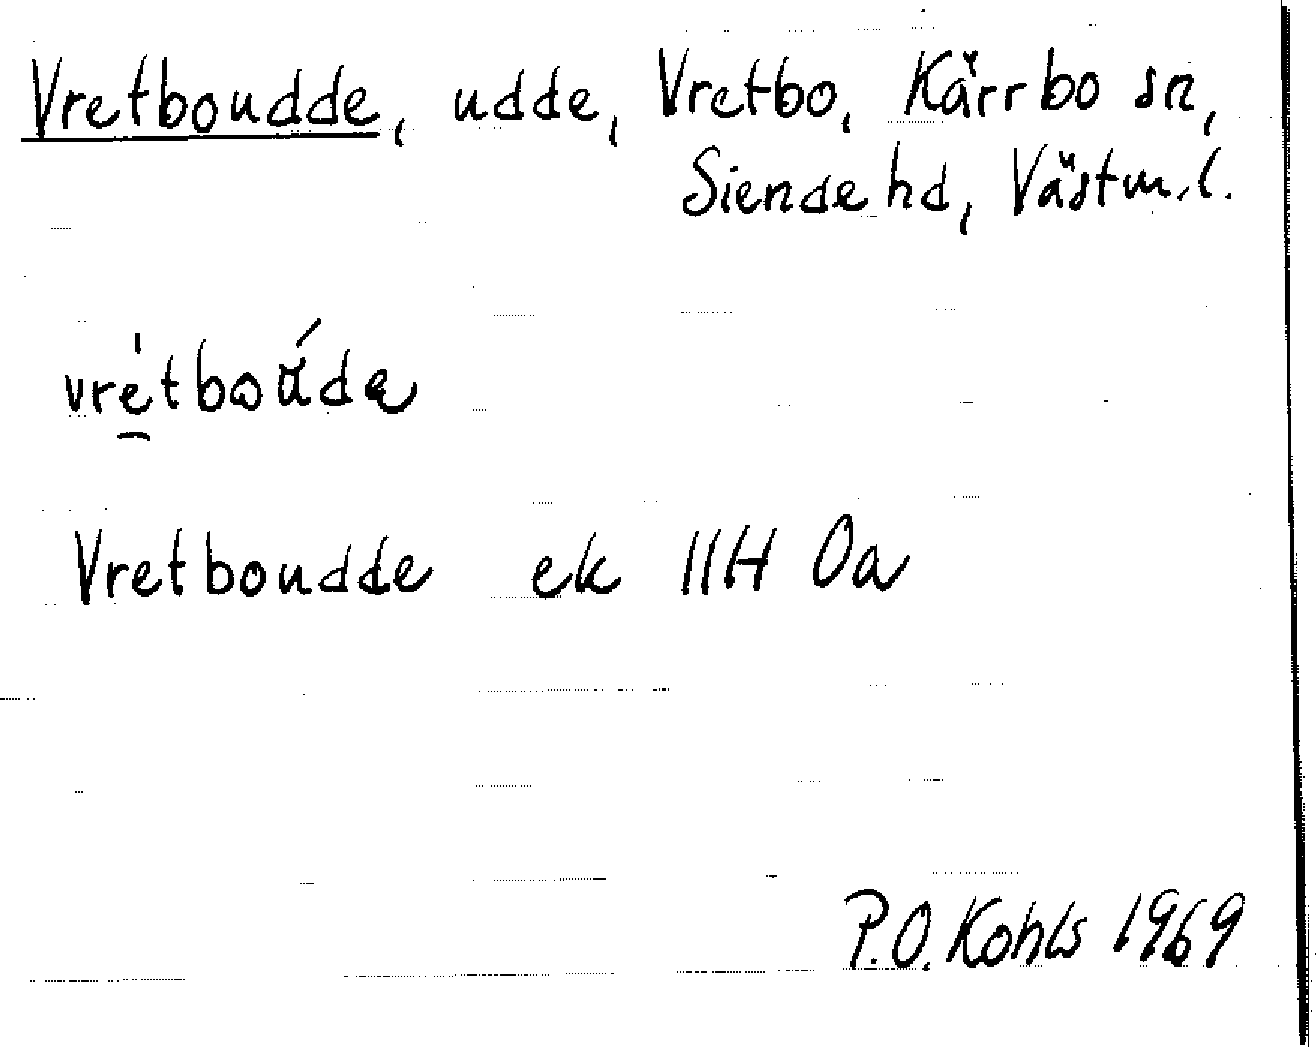 Vretboudde, udde, Vretbo, Kärrbo sn,
Siende hd, Västm.l.
Vretboudde ek 11H 0a
P.O. Kohls 1969